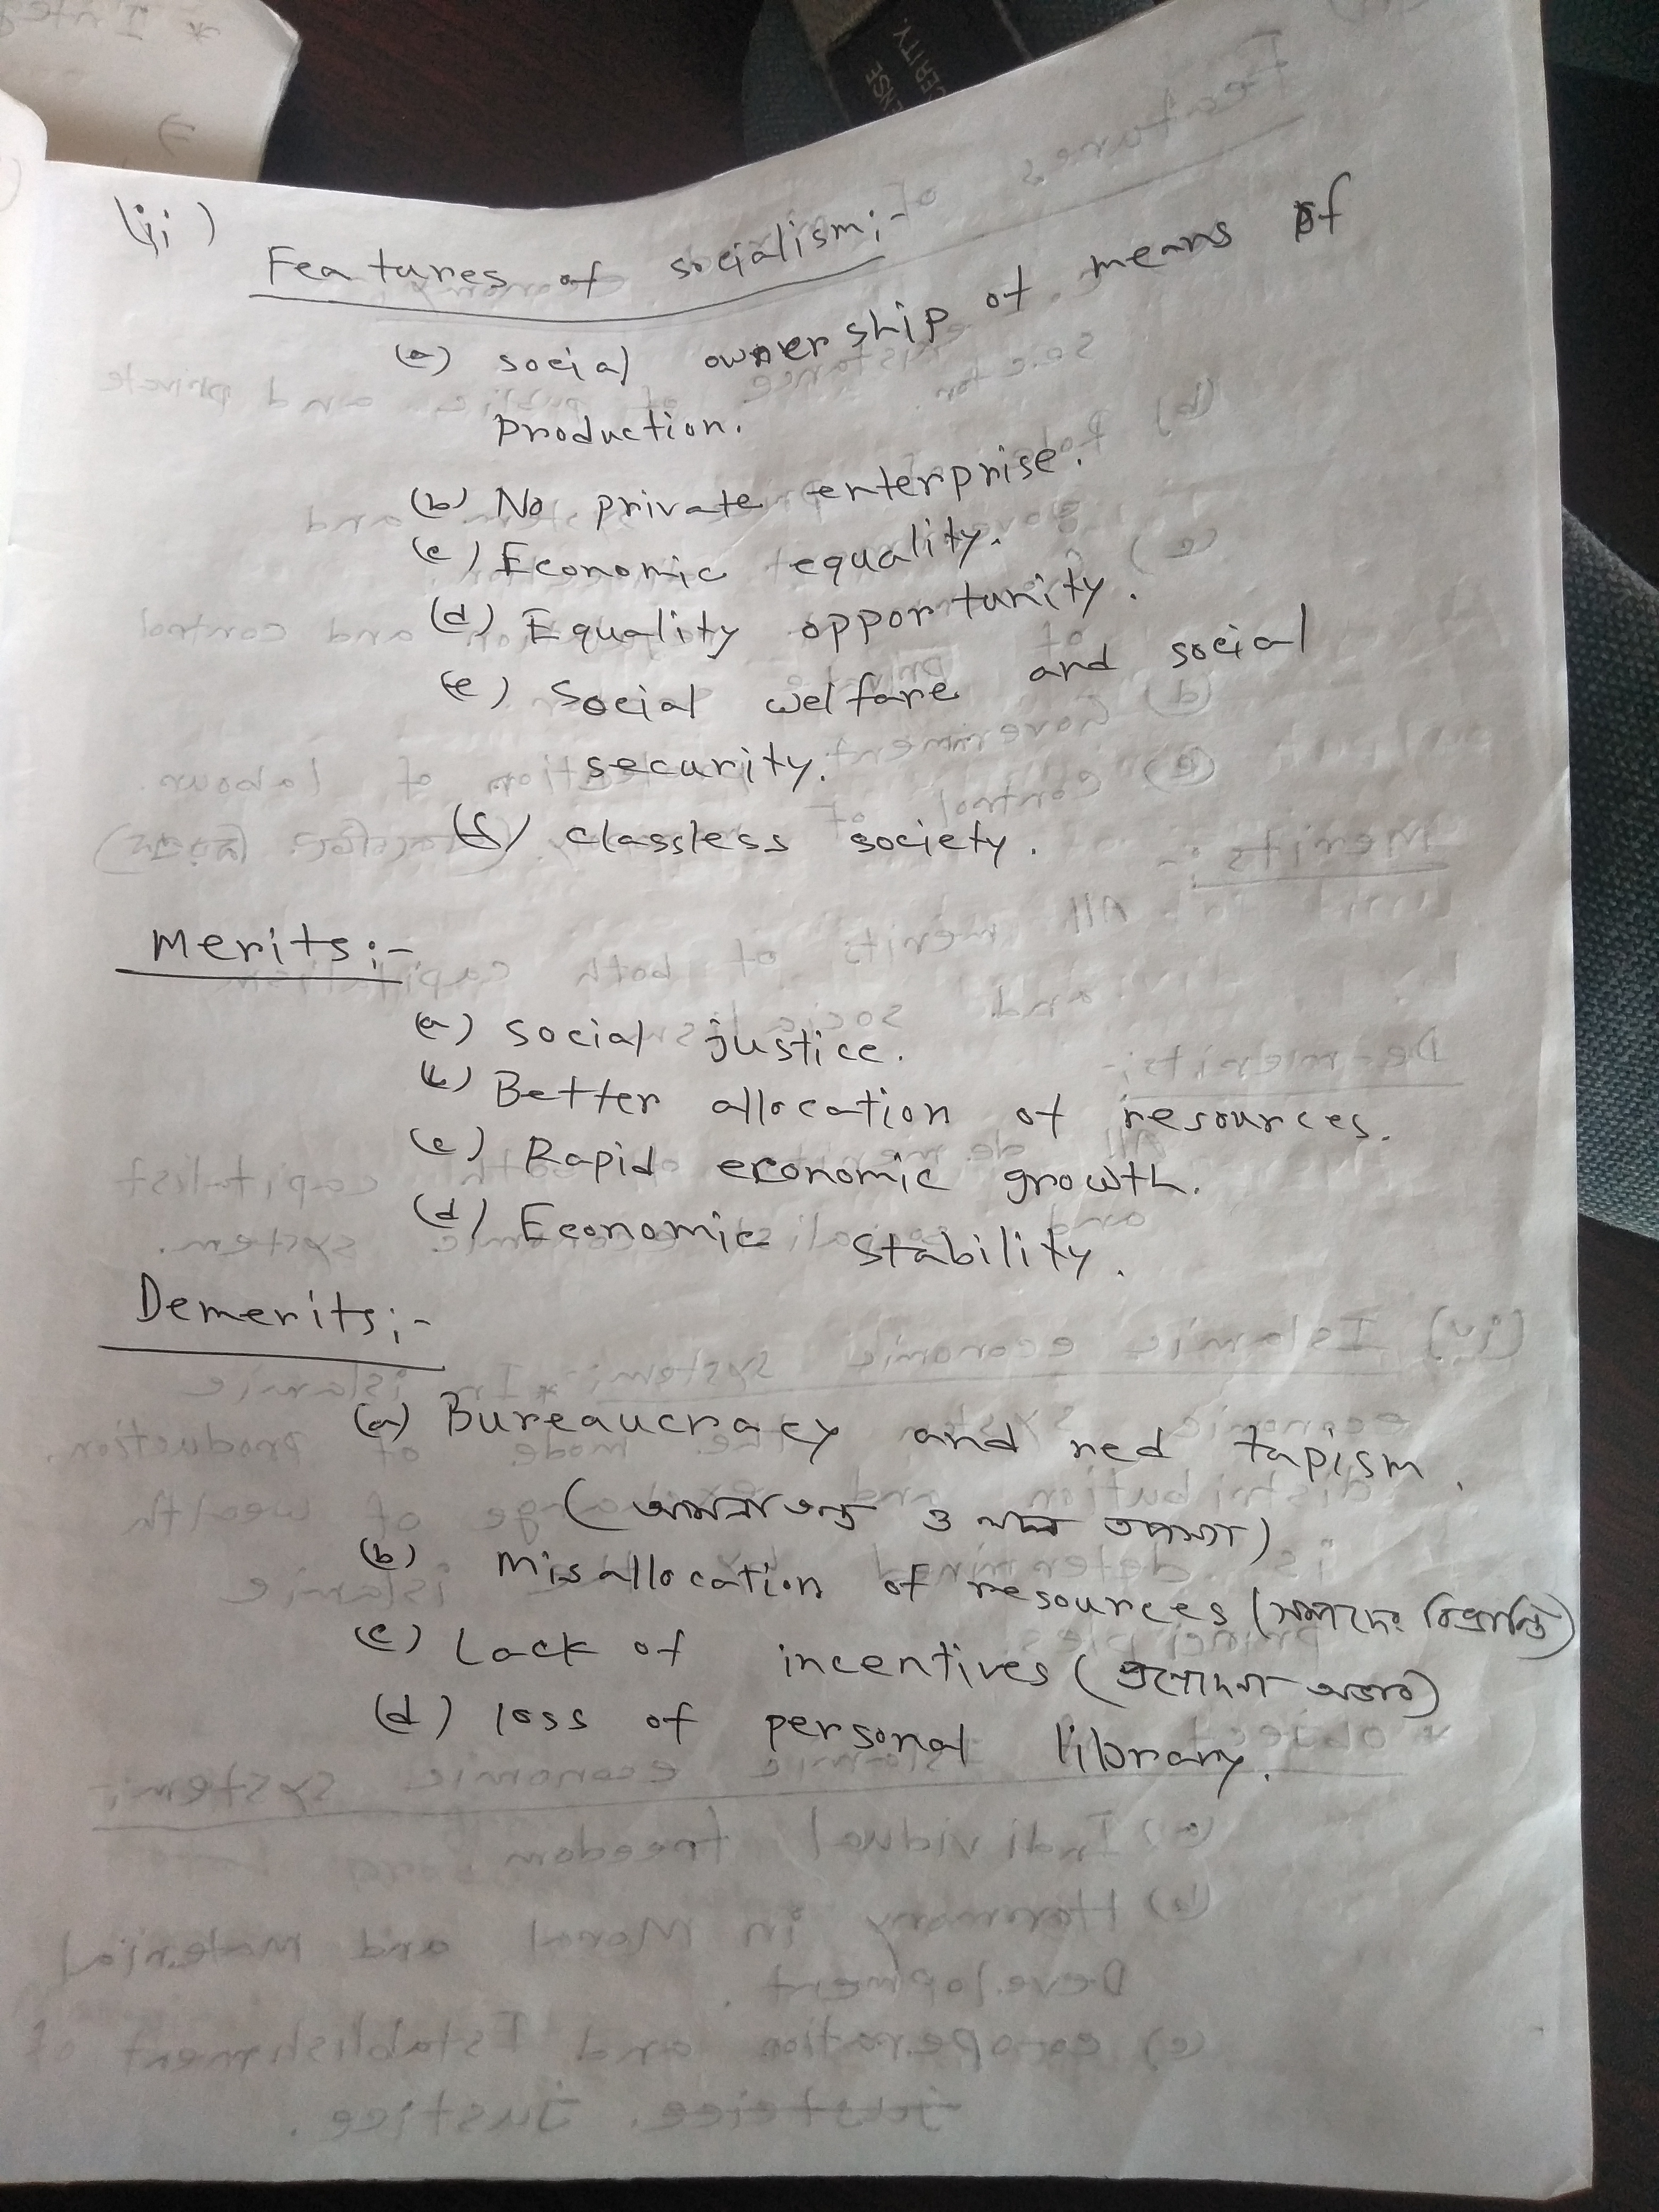 (ii)
Features of socialism:-
(a) social ownership of means of
production.
(b) No private enterprise.
(c) Economic equality.
(d) Equality opportunity.
(e) Social welfare and social
security.
(f) classless society.
Merits:-
(a) social justice.
(b) Better allocation of resources.
(c) Rapid economic growth.
(d) Economic stability.
Demerits:-
(a) Bureaucracy and red tapism.
(আমলাতন্ত্র ও লাল)
(b) Misallocation of resources (সম্পদের বিভ্রান্তি)
(c) Lack of incentives (প্রণোদনা অভাব)
(d) loss of personal library.